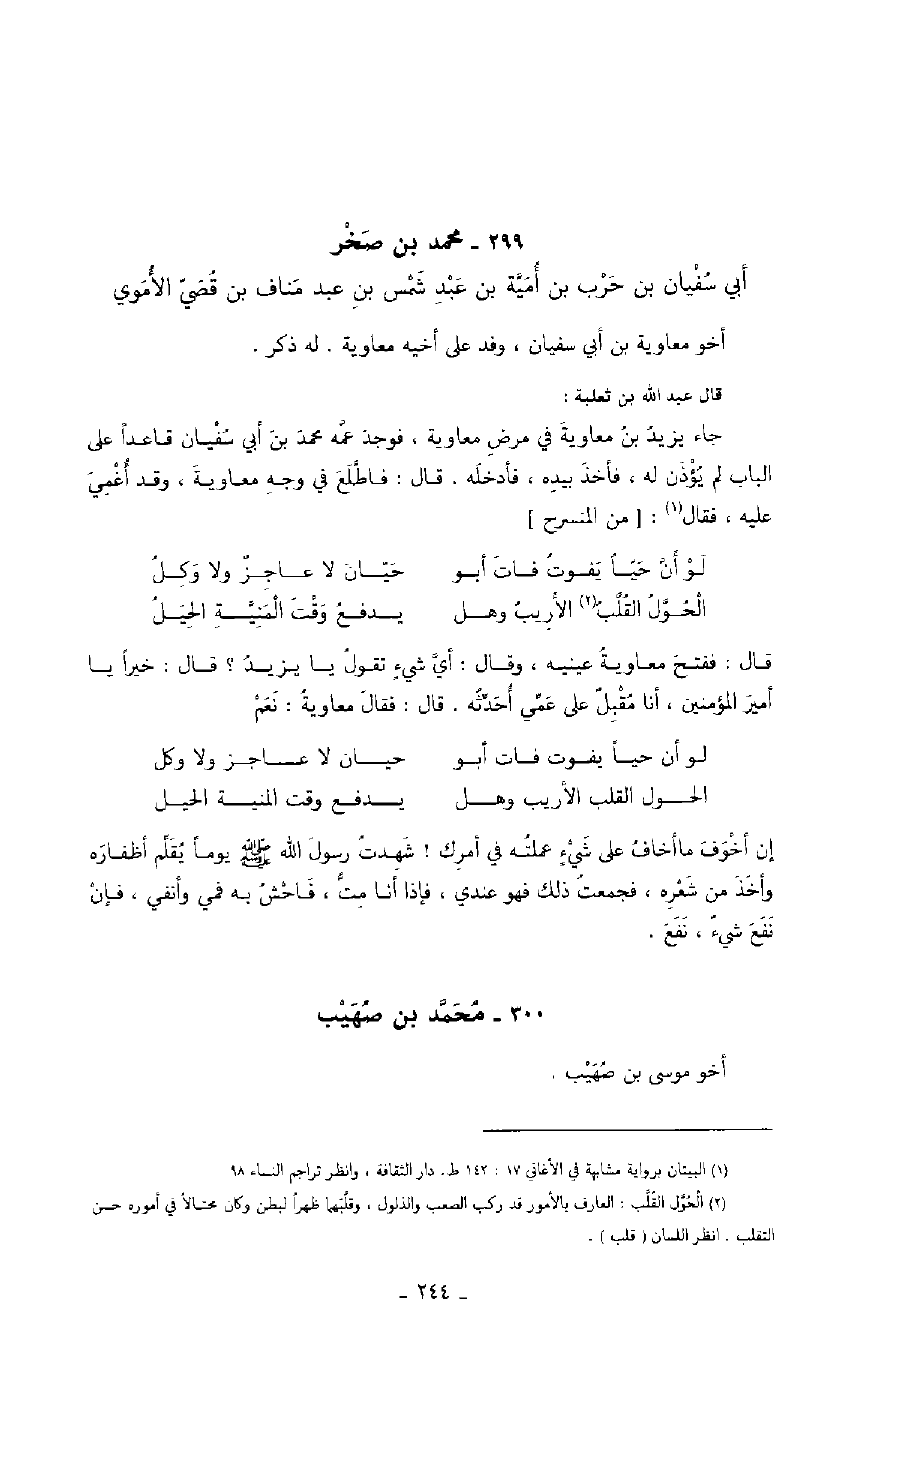 ٢٩٩ ـ محمد بن صَخْر
أبي سُفْيان بن حَرْب بن أُمَيَّة بن عَبْدِ شَمْسِ بنِ عبد مَناف بن قُصَيّ الأُمَوي
أخو معاوية بن أبي سفيان ، وفد على أخيه معاوية . له ذكر .
قال عبد الله بن ثعلبة :
جاء يزيدُ بنُ معاويةَ في مرضِ معاوية ، فوجدَ عمَّه محمدَ بنَ أبي سُفْيان قاعداً على
الباب لم يُؤْذَن له ، فأخذَ بيدِه ، فأدخلَه . قال : فاطَّلَعَ في وجهِ معاويةَ ، وقد أُغْمِيَ
عليه ، فقال(١) : [ من المنسرح ]
لَوْ أنَّ حَيّاً يَفوتُ فاتَ أبو حَيّانَ لا عاجزٌ ولا وَكِلُ
الْحُوَّلُ القُلَّبُ(٢) الأَرِيبُ وهل يدفعُ وَقْتَ الْمَنِيَّةِ الحِيَلُ
قال : ففتحَ معاويةُ عينيه ، وقال : أيَّ شيءٍ تقولُ يا يزيدُ ؟ قال : خيراً يا
أميرَ المؤمنين ، أنا مُقْبِلٌ على عَمّي أُحَدِّثُه . قال : فقالَ معاويةُ : نَعَمْ
لو أن حياً يفوت فات أبو حيان لا عاجز ولا وكل
الحول القلب الأريب وهل يدفع وقت المنية الحيل
إن أخْوَفَ ماأخافُ على شَيْءٍ عملتُه في أمرِك ! شهدتُ رسولَ الله ﷺ يوماً يُقَلِّم أظفارَه
وأخَذَ من شَعْرِه ، فجمعتُ ذلك فهو عندي ، فإذا أنا متُّ ، فَاحْشُ به فمي وأنفي ، فإنْ
نَفَعَ شيءٌ ، نَفَعَ .
٣٠٠ ـ مُحَمَّد بن صُهَيْب
أخو موسى بن صُهَيْب .
(١) البيتان برواية مشابهة في الأغاني ١٧ : ١٤٢ ط. دار الثقافة ، وانظر تراجم النساء ٩٨
(٢) الْحُوَّل القُلَّب : العارف بالأمور قد ركب الصعب والذلول ، وقلَّبها ظهراً لبطن وكان محتالاً في أموره حسن
التقلب . انظر اللسان ( قلب ) .
ـ ٢٤٤ ـ